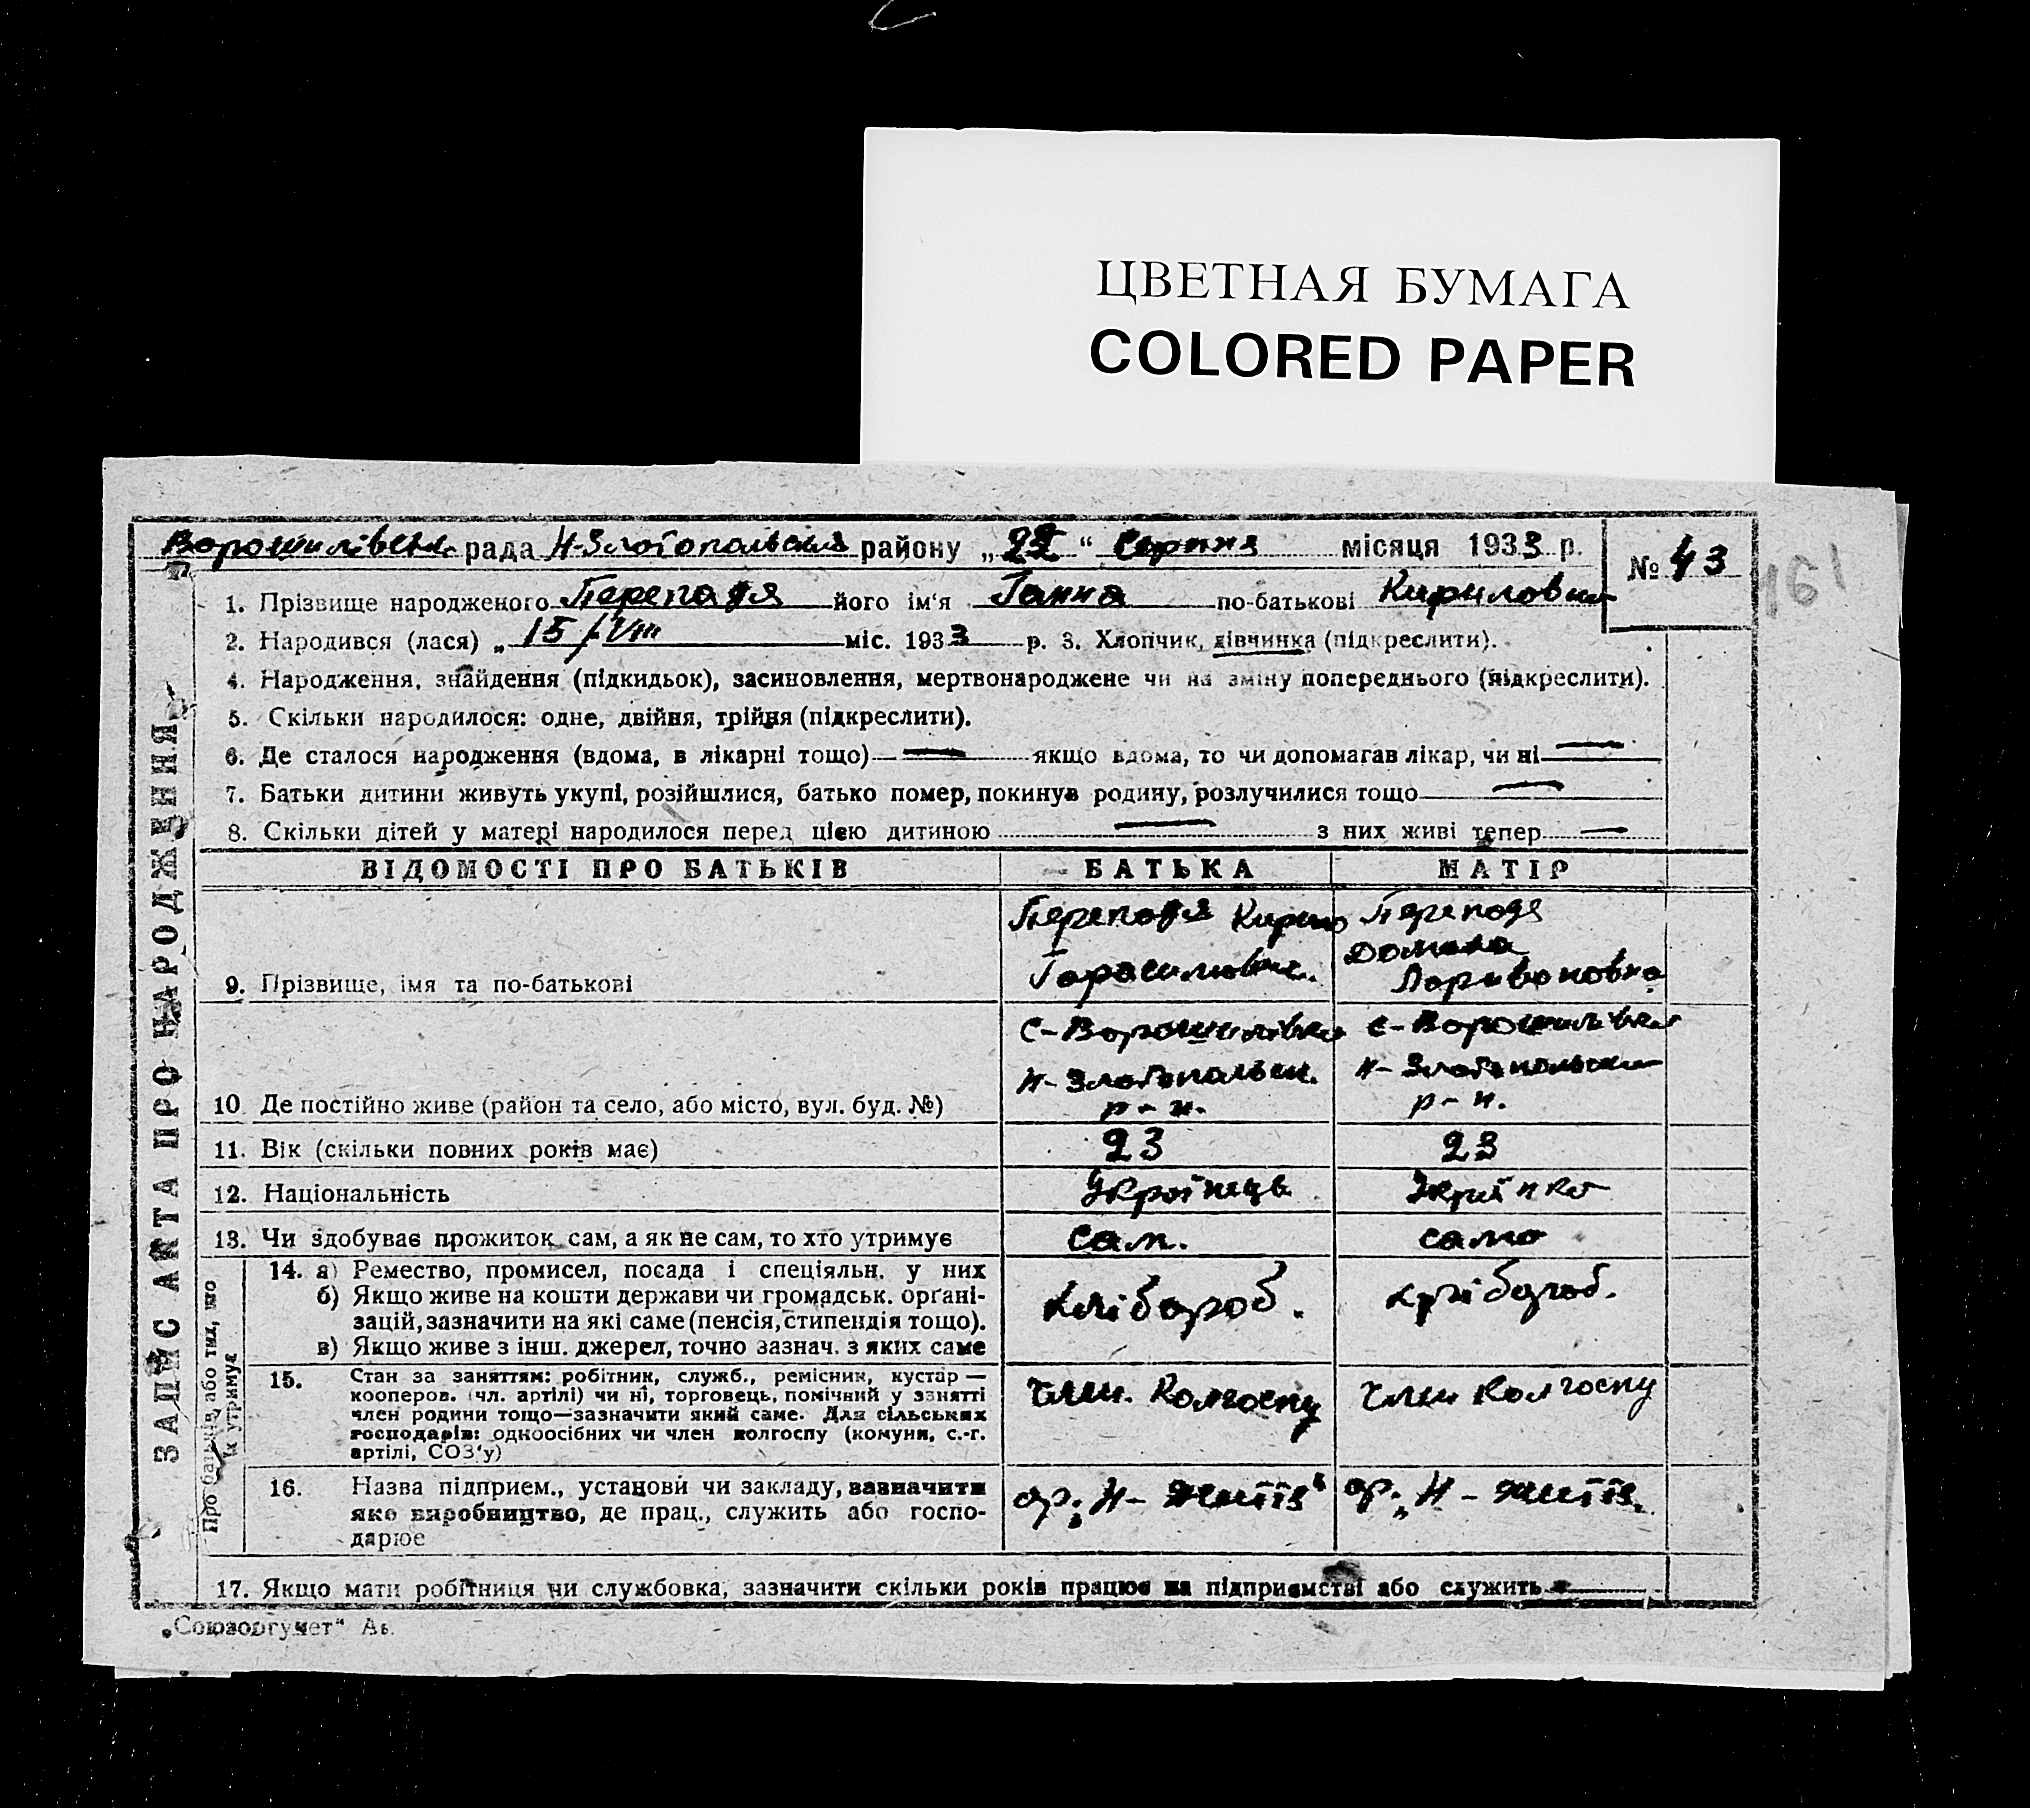 ЦВЕТНАЯ БУМАГА
COLORED PAPER
Ворошилівськ рада Н-Златопольська району „22“ Серпня місяця 1933 р. № 43
161
1. Прізвище народженого Перепадя його ім'я Ганна по-батькові Кириловна
2. Народився (лася) „ 15/VIII міс. 1933 р. 3. Хлопчик, дівчинка (підкреслити).
4. Народження, знайдення (підкидьок), засиновлення, мертвонароджене чи на зміну попереднього (підкреслити).
5. Скільки народилося: одне, двійня, трійня (підкреслити).
6. Де сталося народження (вдома, в лікарні тощо) — якщо вдома, то чи допомагав лікар, чи ні —
7. Батьки дитини живуть укупі, розійшлися, батько помер, покинув родину, розлучилися тощо —
8. Скільки дітей у матері народилося перед цією дитиною — з них живі тепер —
ВІДОМОСТІ ПРО БАТЬКІВ БАТЬКА МАТІР
Перепадя Кирило Перепадя
Домаха
Гарасимович. Ларивоновна
9. Прізвище, імя та по-батькові
с-Ворошилівка с-Ворошилівка
Н-Златопольськ. Н-Златопольськ
10 Де постійно живе (район та село, або місто, вул. буд. №) р-н. р-н.
11. Вік (скільки повних років має) 23 23
12. Національність Українець Українка
13. Чи здобуває прожиток сам, а як не сам, то хто утримує сам. сама
14. а) Ремество, промисел, посада і спеціяльн. у них
б) Якщо живе на кошти держави чи громадськ. органі-
зацій, зазначити на які саме (пенсія, стипендія тощо). хліборob. хлібороб.
в) Якщо живе з інш. джерел, точно зазнач. з яких саме
15. Стан за заняттям: робітник, служб., ремісник, кустар —
кооперов. (чл. артілі) чи ні, торговець, помічний у занятті член. Колгоспу член Колгоспу
член родини тощо—зазначити який саме. Для сільських
господарів: одноосібних чи член колгоспу (комуни, с.-г.
артілі, СОЗ'у)
16. Назва підприєм., установи чи закладу, зазначити
яко виробництво, де прац., служить або госпо- ар. „Н-життя“ ар. „Н-життя.
дарює
17. Якщо мати робітниця чи службовка, зазначити скільки років працює на підприємстві або служить —
ЗАПИС АКТА ПРО НАРОДЖЕННЯ
Про батьків або тих, що
їх утримує
„Союзоргучет“